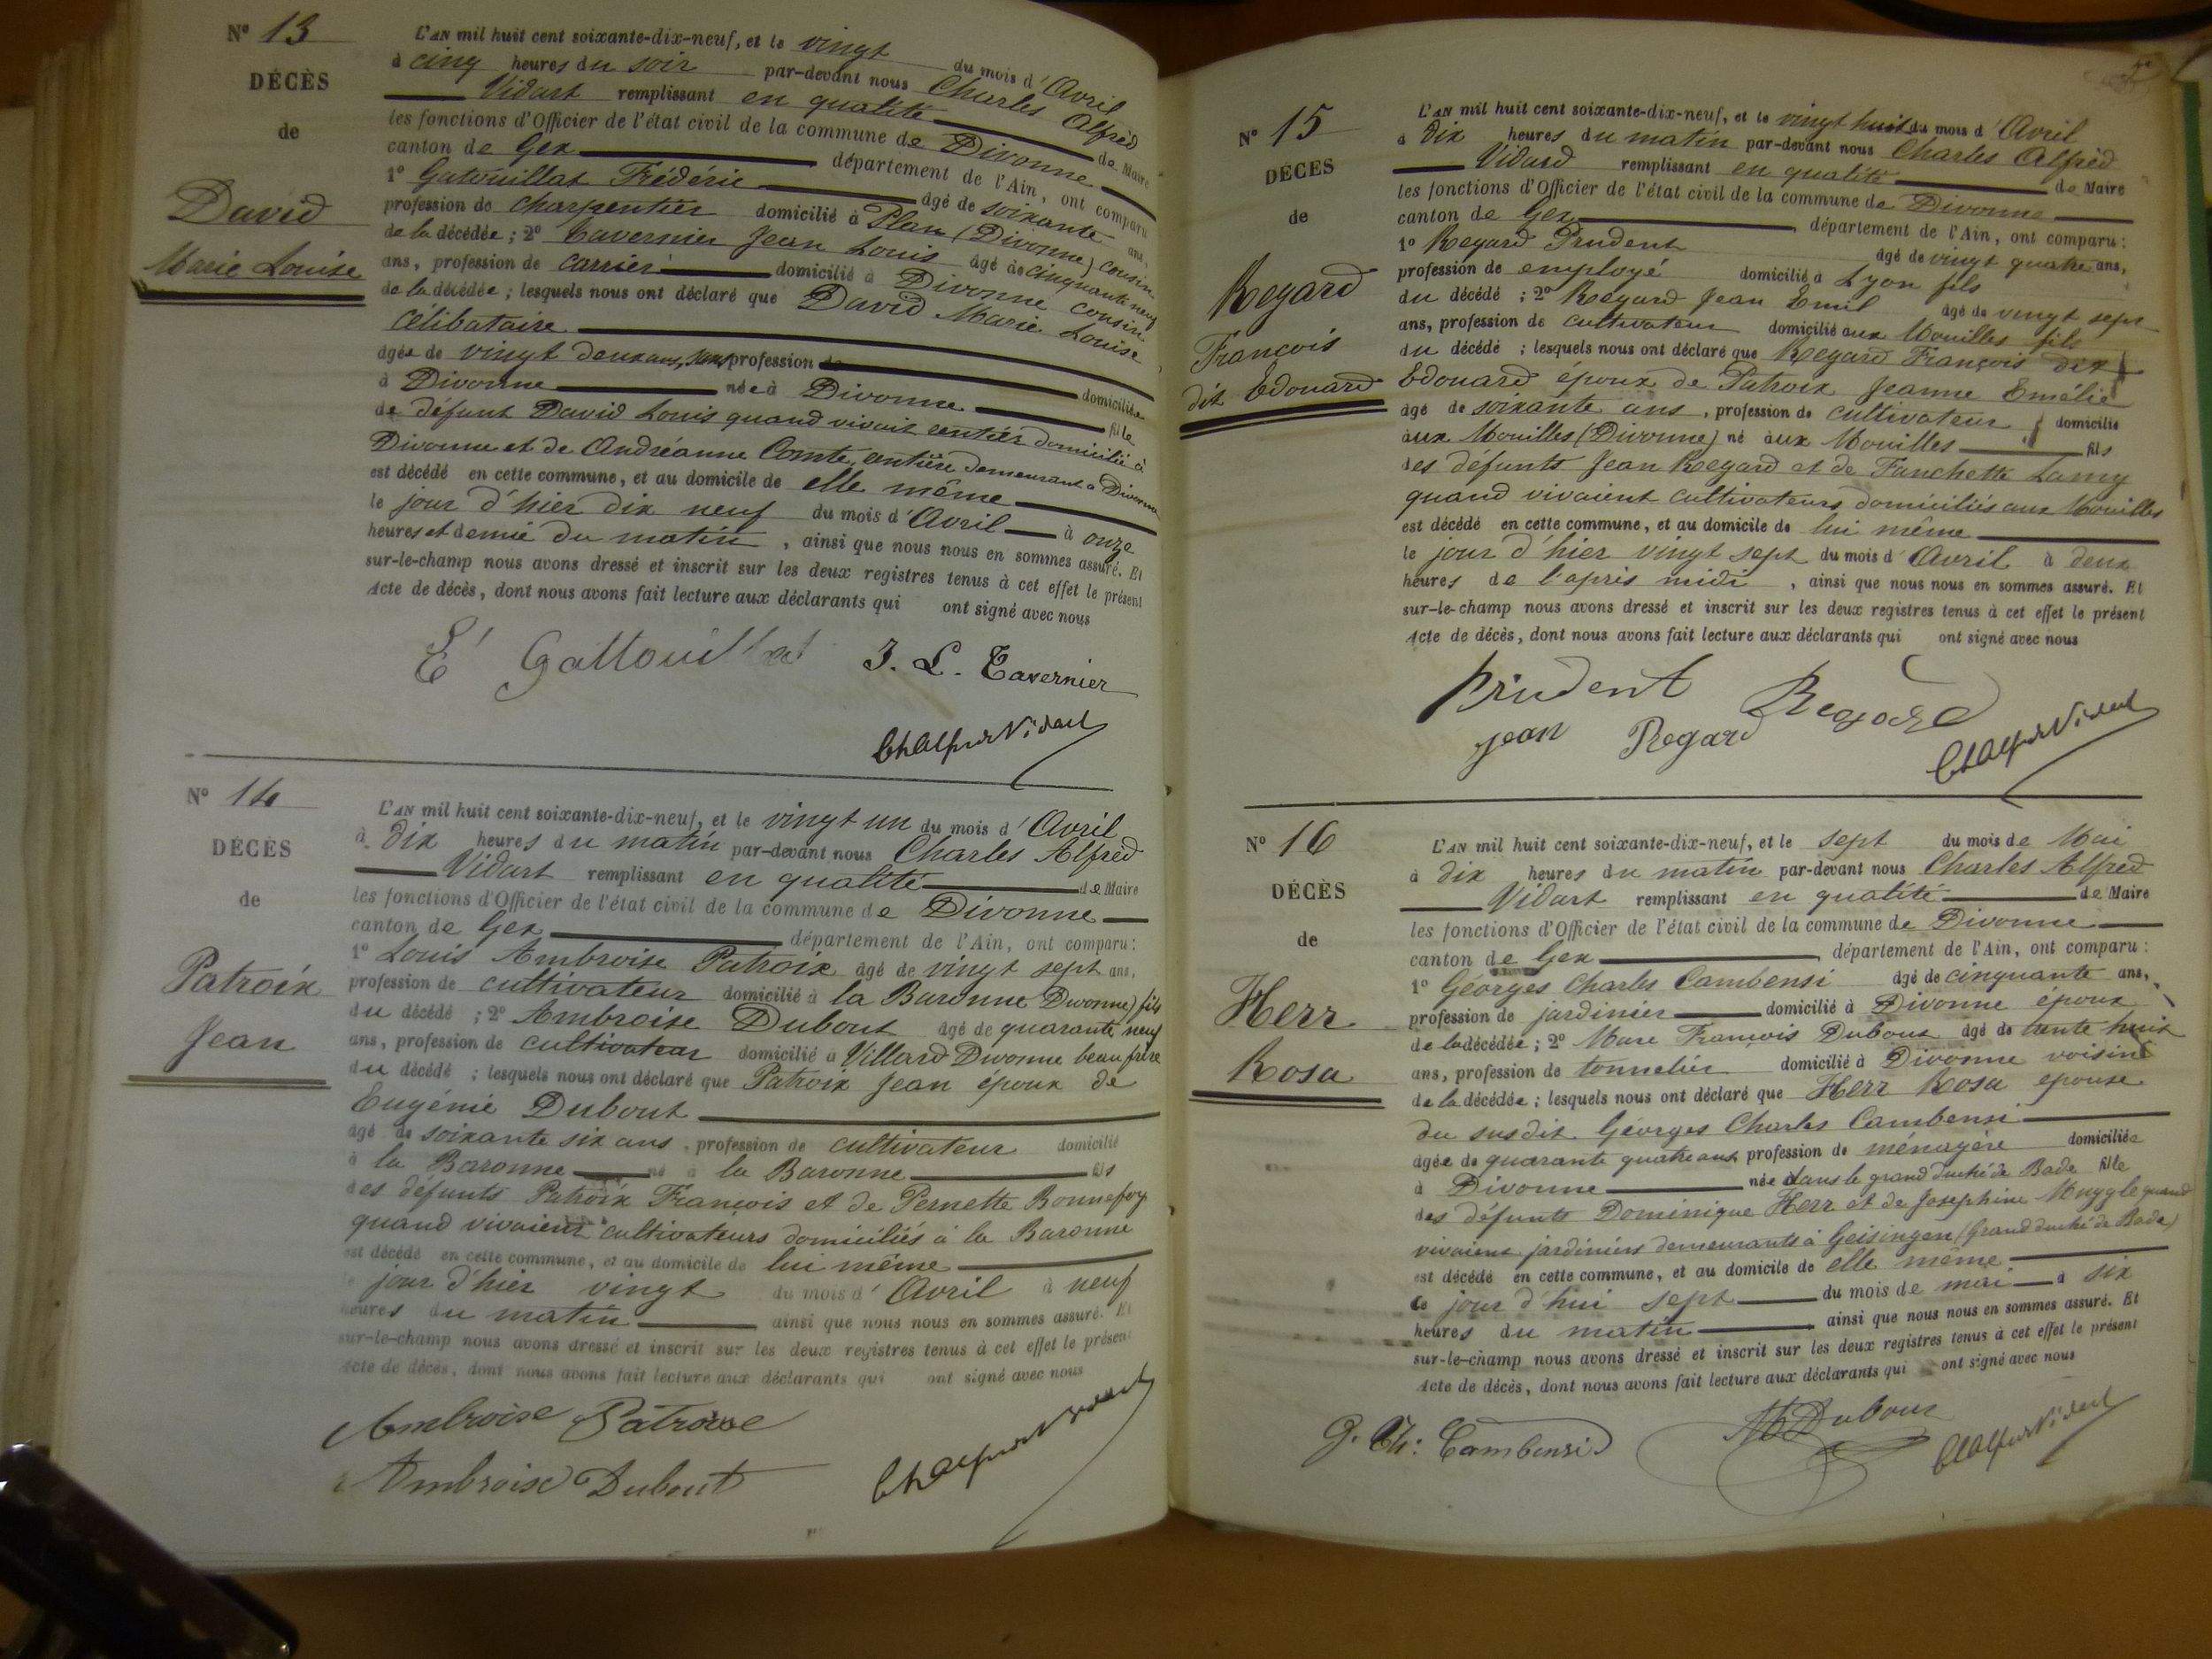 Nº 13
DÉCÈS
de
David
Marie Louise
L'AN mil huit cent soixante-dix-neuf, et le vingt du mois d'Avril
à cinq heures du soir par-devant nous Charles Alfred
Vidart remplissant en qualité de Maire
les fonctions d'Officier de l'état civil de la commune de Divonne
canton de Gex département de l'Ain, ont comparu
1º Gatouillat Frédéric âgé de soixante ans,
profession de charpentier domicilié à Plan (Divonne) cousin
de la décédée ; 2º Tavernier Jean Louis âgé de cinquante neuf
ans, profession de carrier domicilié à Divonne cousin
de la décédée ; lesquels nous ont déclaré que David Marie Louise
célibataire
âgée de vingt deux ans, sans profession domiciliée
à Divonne née à Divonne fille
de défunt David Louis quand vivait rentier domicilié à
Divonne et de Andréanne Comte, rentière demeurant à Divonne
est décédé en cette commune, et au domicile de elle même
le jour d'hier dix neuf du mois d'Avril à onze
heures et demie du matin, ainsi que nous nous en sommes assuré. Et
sur-le-champ nous avons dressé et inscrit sur les deux registres tenus à cet effet le présent
Acte de décès, dont nous avons fait lecture aux déclarants qui ont signé avec nous
Gattouillat J. L. Tavernier
Ch Alfred Vidart
Nº 14
DÉCÈS
de
Patroix
Jean
L'AN mil huit cent soixante-dix-neuf, et le vingt un du mois d'Avril
à dix heures du matin par-devant nous Charles Alfred
Vidart remplissant en qualité de Maire
les fonctions d'Officier de l'état civil de la commune de Divonne
canton de Gex département de l'Ain, ont comparu :
1º Louis Ambroise Patroix âgé de vingt sept ans,
profession de cultivateur domicilié à la Baronne (Divonne) fils
du décédé ; 2º Ambroise Dubout âgé de quarante neuf
ans, profession de cultivateur domicilié à Villard Divonne beau frère
du décédé ; lesquels nous ont déclaré que Patroix Jean époux de
Eugénie Dubout
âgé de soixante six ans, profession de cultivateur domicilié
à la Baronne né à la Baronne fils
des défunts Patroix François et de Pernette Bonnefoy
quand vivaient cultivateurs domiciliés à la Baronne
est décédé en cette commune, et au domicile de lui même
le jour d'hier vingt du mois d'Avril à neuf
heures du matin ainsi que nous nous en sommes assuré. Et
sur-le-champ nous avons dressé et inscrit sur les deux registres tenus à cet effet le présent
Acte de décès, dont nous avons fait lecture aux déclarants qui ont signé avec nous
Ambroise Patroix
Ambroise Dubout
Ch Alfred Vidart
Nº 15
DÉCÈS
de
Regard
François
dit Edouard
L'AN mil huit cent soixante-dix-neuf, et le vingt huit du mois d'Avril
à dix heures du matin par-devant nous Charles Alfred
Vidard remplissant en qualité de Maire
les fonctions d'Officier de l'état civil de la commune de Divonne
canton de Gex département de l'Ain, ont comparu :
1º Regard Prudent âgé de vingt quatre ans,
profession de employé domicilié à Lyon fils
du décédé ; 2º Regard Jean Emil âgé de vingt sept
ans, profession de cultivateur domicilié aux Mouilles fils
du décédé ; lesquels nous ont déclaré que Regard François dit
Edouard époux de Patroix Jeanne Emélie
âgé de soixante ans, profession de cultivateur domicilié
aux Mouilles (Divonne) né aux Mouilles fils
des défunts Jean Regard et de Fanchette Lamy
quand vivaient cultivateurs domiciliés aux Mouilles
est décédé en cette commune, et au domicile de lui même
le jour d'hier vingt sept du mois d'Avril à deux
heures de l'après midi, ainsi que nous nous en sommes assuré. Et
sur-le-champ nous avons dressé et inscrit sur les deux registres tenus à cet effet le présent
Acte de décès, dont nous avons fait lecture aux déclarants qui ont signé avec nous
Prudent Regard
jean Regard
Ch Alfred Vidart
Nº 16
DÉCÈS
de
Herr
Rosa
L'AN mil huit cent soixante-dix-neuf, et le sept du mois de Mai
à dix heures du matin par-devant nous Charles Alfred
Vidart remplissant en qualité de Maire
les fonctions d'Officier de l'état civil de la commune de Divonne
canton de Gex département de l'Ain, ont comparu :
1º Géorges Charles Cambensi âgé de cinquante ans,
profession de jardinier domicilié à Divonne époux
de la décédée ; 2º Marc François Dubout âgé de trente huit
ans, profession de tonnelier domicilié à Divonne voisin
de la décédée ; lesquels nous ont déclaré que Herr Rosa epouse
du susdit Géorges Charles Cambensi
âgée de quarante quatre ans profession de ménagère domiciliée
à Divonne née dans le grand duché de Bade fille
des défunts Dominique Herr et de Joséphine Muggle quand
vivaient jardiniers demeurants à Geisingen (Grand duché de Bade)
est décédé en cette commune, et au domicile de elle même
ce jour d'hui sept du mois de mai à six
heures du matin ainsi que nous nous en sommes assuré. Et
sur-le-champ nous avons dressé et inscrit sur les deux registres tenus à cet effet le présent
Acte de décès, dont nous avons fait lecture aux déclarants qui ont signé avec nous
G. Ch: Cambensi Dubout
Ch Alfred Vidart